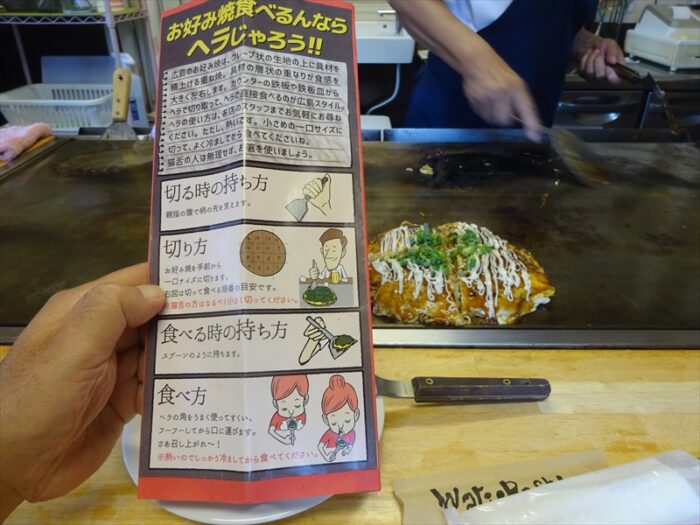 お好み焼食べるんなら
ヘラじゃろう!!
広島のお好み焼は、クレープ状の生地の上に具材を
積上げる重ね焼。具材の層状の重なりが食感を
大きく左右します。カウンターの鉄板や鉄板皿から
ヘラで切り取って、ヘラで直接食べるのが広島スタイル。
ヘラの使い方は、お店のスタッフまでお気軽にお尋ね
ください。ただし、熱いです。小さめの一口サイズに
切って、よく冷ましてから食べてくださいね。
猫舌の人は無理せず、お箸を使いましょう。
切る時の持ち方
親指の腹で柄の先を支えます。
切り方
お好み焼を手前から
一口サイズに切ります。
右図は切って食べる順番の目安です。
※猫舌の方はなるべく小さく切ってください。
食べる時の持ち方
スプーンのように持ちます。
食べ方
ヘラの角をうまく使ってすくい、
フーフーしてから口に運びます。
さあ召し上がれ〜!
※熱いのでしっかり冷ましてから食べてください。